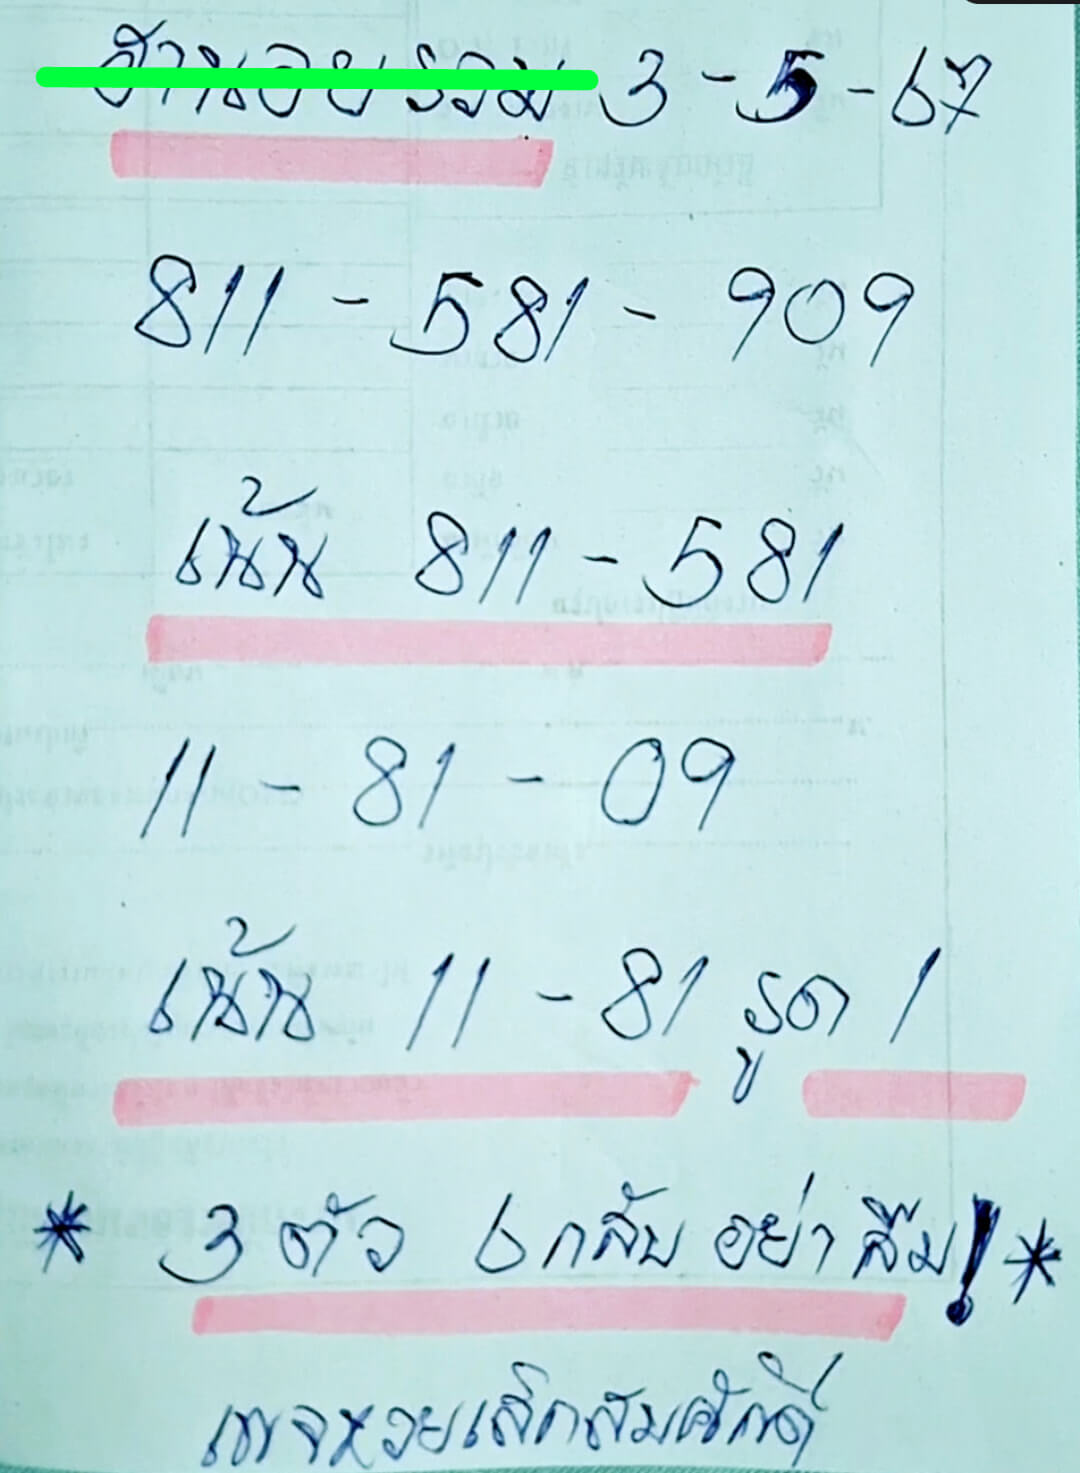 ฮานอยรวม 3-5-67
811 - 581 - 909
เน้น 811 - 581
11 - 81 - 09
เน้น 11 - 81 รูด 1
* 3 ตัว 6 กลับ อย่าลืม! *
เพจหวยเล็กสมศักดิ์